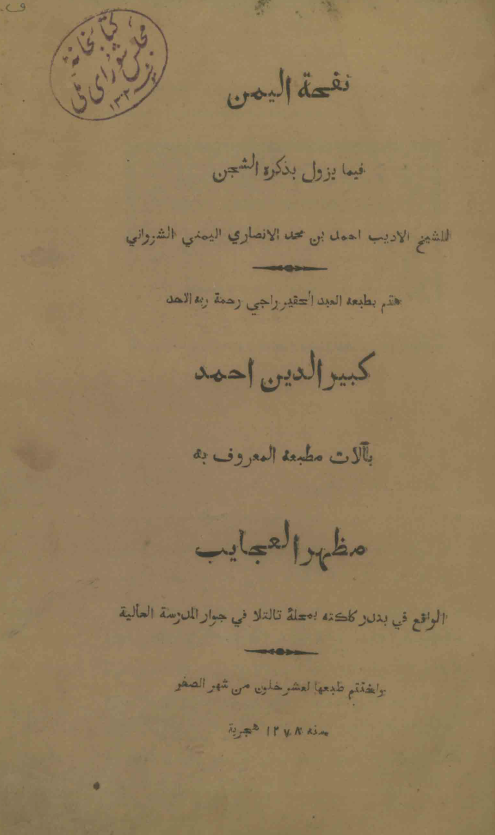 كتابخانه
مجلس شورای ملی
نفحة اليمن
فيما يزول بذكره الشجن
للشيخ الاديب احمد بن محمد الانصاري اليمني الشرواني
بطبعه العبد الحقير راجي رحمة ربه الاحد
كبير الدين احمد
بآلات مطبعه المعروف به
مظهر العجايب
الواقع في بندر كلكته بمحلة تالتلا في جوار المدرسة العالية
واختتم طبعها لعشر خلون من شهر الصفر
سنه ١٢٧٨ هجرية